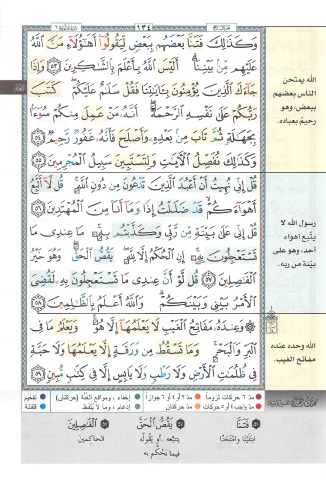 ١٣٤
وَكَذَٰلِكَ فَتَنَّا بَعْضَهُم بِبَعْضٍ لِّيَقُولُوٓا۟ أَهَٰٓؤُلَآءِ مَنَّ ٱللَّهُ
عَلَيْهِم مِّنۢ بَيْنِنَآ ۗ أَلَيْسَ ٱللَّهُ بِأَعْلَمَ بِٱلشَّٰكِرِينَ ٥٣ وَإِذَا
جَآءَكَ ٱلَّذِينَ يُؤْمِنُونَ بِـَٔايَٰتِنَا فَقُلْ سَلَٰمٌ عَلَيْكُمْ ۖ كَتَبَ
رَبُّكُمْ عَلَىٰ نَفْسِهِ ٱلرَّحْمَةَ ۖ أَنَّهُۥ مَنْ عَمِلَ مِنكُمْ سُوٓءًۢا
بِجَهَٰلَةٍ ثُمَّ تَابَ مِنۢ بَعْدِهِۦ وَأَصْلَحَ فَأَنَّهُۥ غَفُورٌ رَّحِيمٌ ٥٤
وَكَذَٰلِكَ نُفَصِّلُ ٱلْـَٔايَٰتِ وَلِتَسْتَبِينَ سَبِيلُ ٱلْمُجْرِمِينَ ٥٥
قُلْ إِنِّى نُهِيتُ أَنْ أَعْبُدَ ٱلَّذِينَ تَدْعُونَ مِن دُونِ ٱللَّهِ ۚ قُل لَّآ أَتَّبِعُ
أَهْوَآءَكُمْ ۙ قَدْ ضَلَلْتُ إِذًا وَمَآ أَنَا۠ مِنَ ٱلْمُهْتَدِينَ ٥٦
قُلْ إِنِّى عَلَىٰ بَيِّنَةٍ مِّن رَّبِّى وَكَذَّبْتُم بِهِۦ ۚ مَا عِندِى مَا
تَسْتَعْجِلُونَ بِهِۦٓ ۚ إِنِ ٱلْحُكْمُ إِلَّا لِلَّهِ ۖ يَقُصُّ ٱلْحَقَّ ۖ وَهُوَ خَيْرُ
ٱلْفَٰصِلِينَ ٥٧ قُل لَّوْ أَنَّ عِندِى مَا تَسْتَعْجِلُونَ بِهِۦ لَقُضِىَ
ٱلْأَمْرُ بَيْنِى وَبَيْنَكُمْ ۗ وَٱللَّهُ أَعْلَمُ بِٱلظَّٰلِمِينَ ٥٨
وَعِندَهُۥ مَفَاتِحُ ٱلْغَيْبِ لَا يَعْلَمُهَآ إِلَّا هُوَ ۚ وَيَعْلَمُ مَا فِى
ٱلْبَرِّ وَٱلْبَحْرِ ۚ وَمَا تَسْقُطُ مِن وَرَقَةٍ إِلَّا يَعْلَمُهَا وَلَا حَبَّةٍ
فِى ظُلُمَٰتِ ٱلْأَرْضِ وَلَا رَطْبٍ وَلَا يَابِسٍ إِلَّا فِى كِتَٰبٍ مُّبِينٍ ٥٩
الله يمتحن
الناس بعضهم
ببعض، وهو
رحيمٌ بعباده.
رسول الله لا
يتّبع أهواء
أحد، وهو على
بيّنة من ربه.
الله وحده عنده
مفاتح الغيب.
مدّ ٦ حركات لزوماً مدّ ٢ أو ٤ أو ٦ جوازاً إخفاء، ومواقع الغُنَّة (حركتان) تفخيم
مدّ واجب ٤ أو ٥ حركات مدّ حركتان إدغام، وما لا يُلفَظ قلقلة
٥٣ فَتَنَّا
ابتَلَيْنَا وامْتَحَنَّا
٥٧ يَقُصُّ ٱلْحَقَّ
يَتَّبِعه، أو يَقُولُه
فيما يَحْكُم به
٥٧ ٱلْفَٰصِلِينَ
الحاكِمين